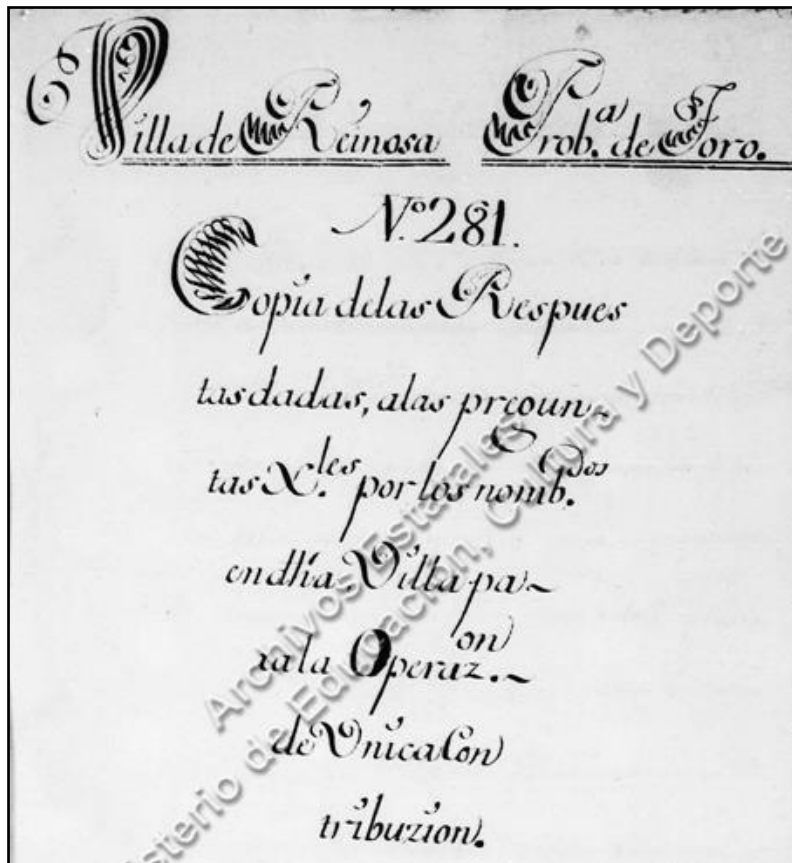 Villa de Reinosa Prob.ª de Toro.
N.º 281.
Copia delas Respues
tas dadas, alas pregun~
tas X.les por los nomb.dos
en dha Villa pa~
rala Operaz.on ~
de Vnica Con
tribuzion.
Archivos Estatales
Ministerio de Educación, Cultura y Deporte